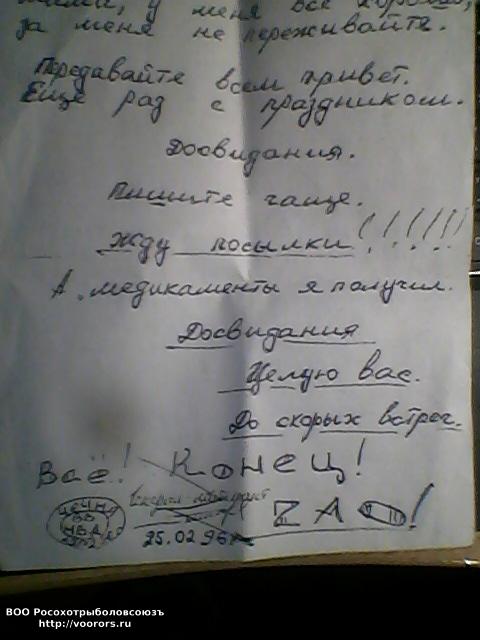 у меня всё хорошо,
за меня не переживайте.
Передавайте всем привет.
Еще раз с праздником.
Досвидания.
Пишите чаще.
Жду посылки!!!!!!
А медикаменты я получил.
Досвидания
Целую вас.
До скорых встреч.
Всё! Конец!
ZA !
ЧЕЧНЯ
ВВ
25.02.96г
ВОО Росохотрыболовсоюзъ
http://voorors.ru